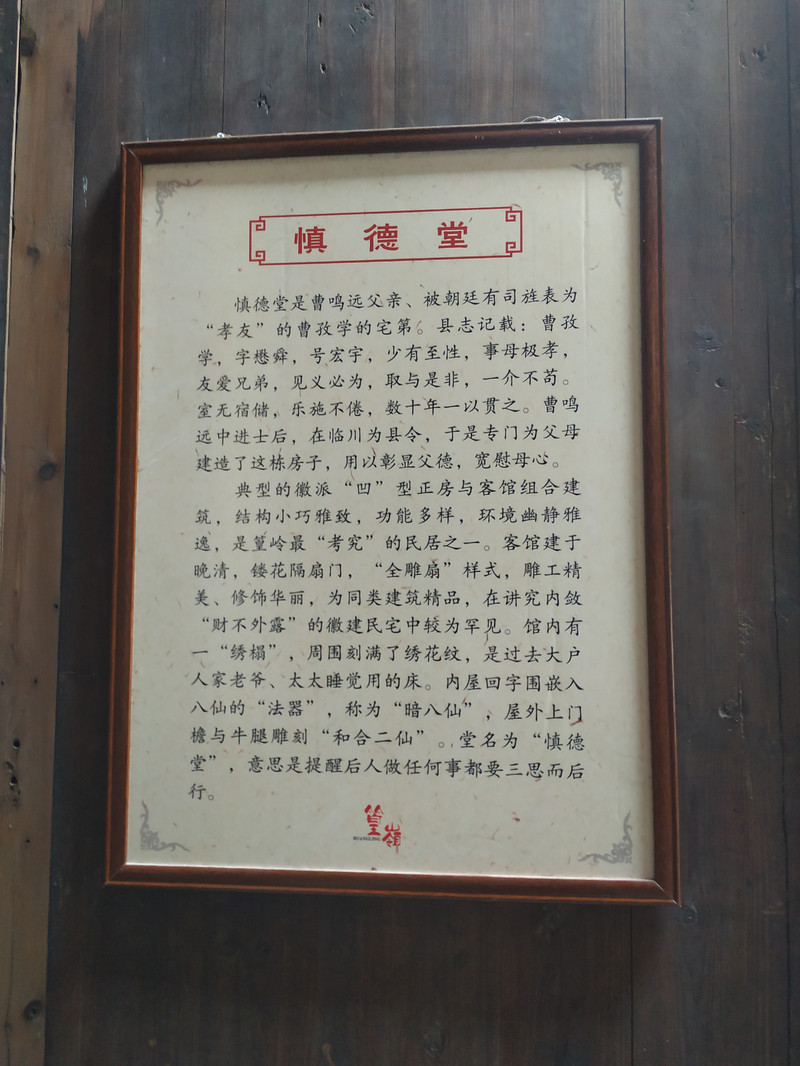 慎德堂
慎德堂是曹鸣远父亲、被朝廷有司旌表为
“孝友”的曹孜学的宅第。县志记载：曹孜
学，字懋舜，号宏宇，少有至性，事母极孝，
友爱兄弟，见义必为，取与是非，一介不苟。
室无宿储，乐施不倦，数十年一以贯之。曹鸣
远中进士后，在临川为县令，于是专门为父母
建造了这栋房子，用以彰显父德，宽慰母心。
典型的徽派“凹”型正房与客馆组合建
筑，结构小巧雅致，功能多样，环境幽静雅
逸，是篁岭最“考究”的民居之一。客馆建于
晚清，镂花隔扇门，“全雕扇”样式，雕工精
美、修饰华丽，为同类建筑精品，在讲究内敛
“财不外露”的徽建民宅中较为罕见。馆内有
一“绣榻”，周围刻满了绣花纹，是过去大户
人家老爷、太太睡觉用的床。内屋回字围嵌入
八仙的“法器”，称为“暗八仙”，屋外上门
檐与牛腿雕刻“和合二仙”。堂名为“慎德
堂”，意思是提醒后人做任何事都要三思而后
行。
篁嶺
HUANGLING